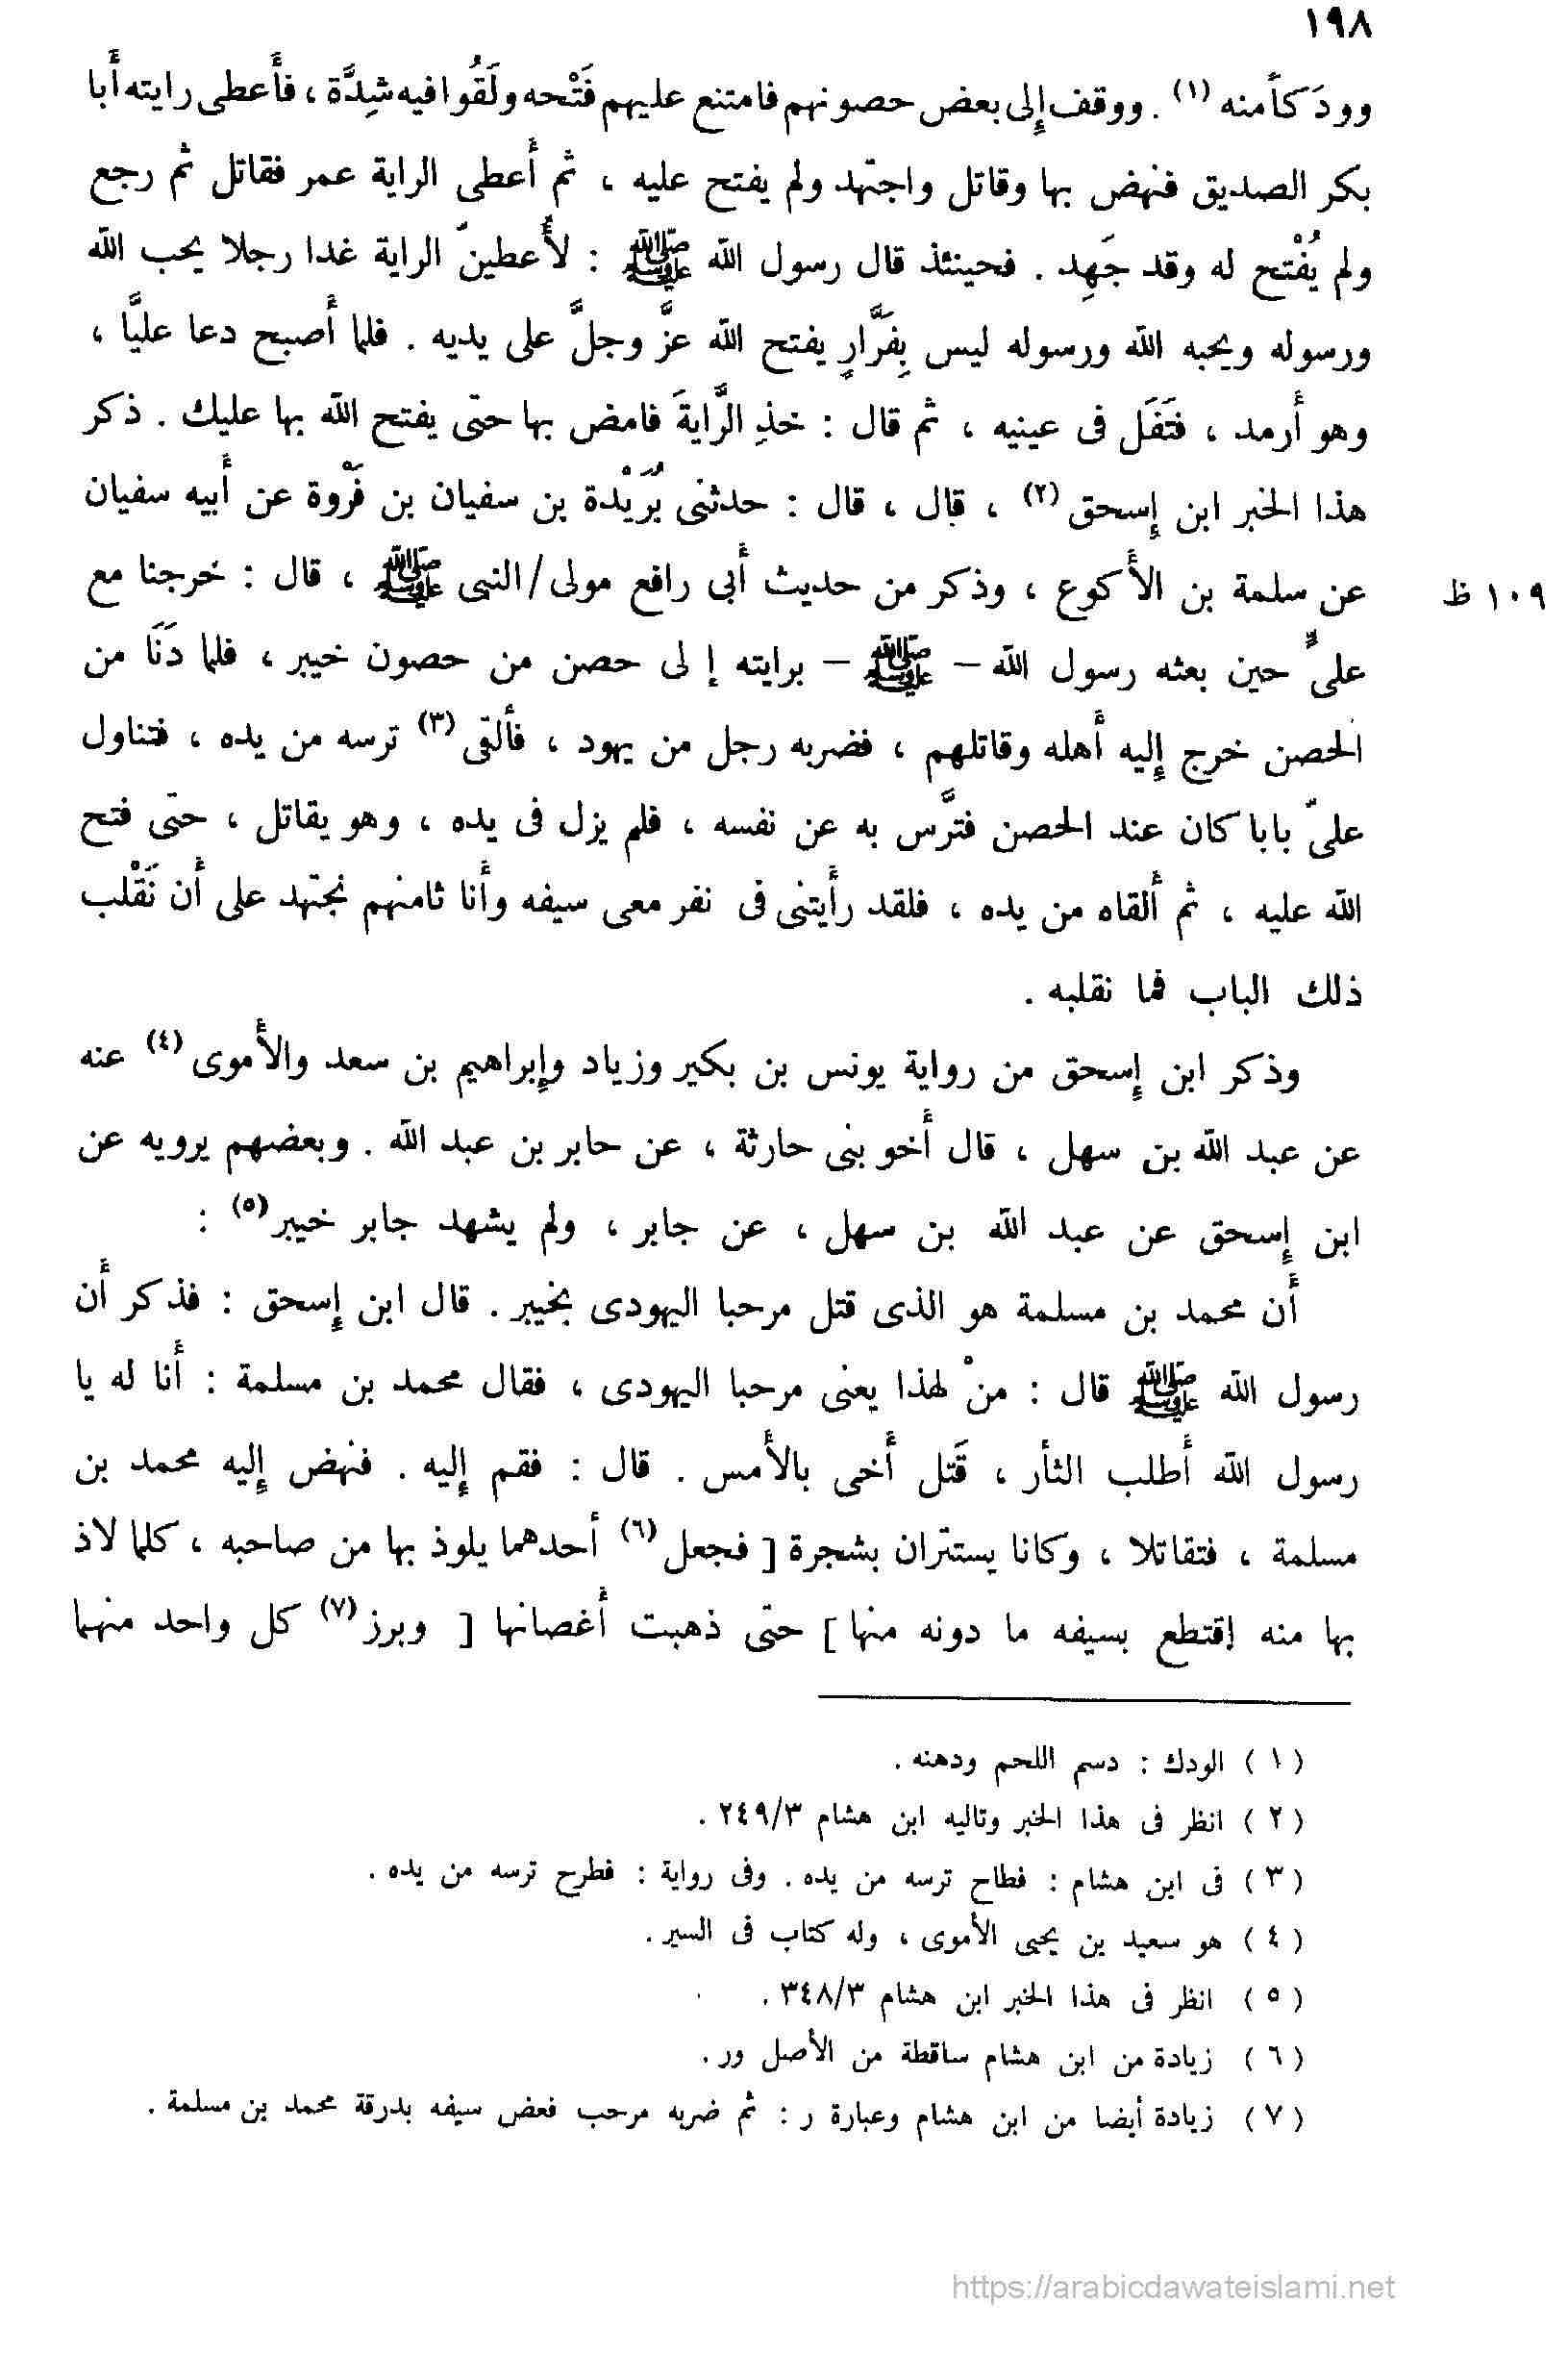 ١٩٨
وودَكاً منه (١) . ووقف إِلى بعض حصونهم فامتنع عليهم فَتْحه ولَقُوا فيه شِدَّة ، فأَعطى رايته أَبا
بكر الصديق فنهض بها وقاتل واجتهد ولم يفتح عليه ، ثم أَعطى الراية عمر فقاتل ثم رجع
ولم يُفْتح له وقد جَهِد . فحينئذ قال رسول الله ﷺ : لأُعطينّ الراية غدا رجلا يحب الله
ورسوله ويحبه الله ورسوله ليس بِفَرَّارٍ يفتح الله عزَّ وجلَّ على يديه . فلما أَصبح دعا عليًّا ،
وهو أَرمد ، فتَفَل فى عينيه ، ثم قال : خذِ الرَّايةَ فامض بها حتى يفتح الله بها عليك . ذكر
هذا الخبر ابن إِسحق (٢) ، قال ، قال : حدثنى بُرَيْدة بن سفيان بن فَرْوة عن أَبيه سفيان
عن سلمة بن الأَكوع ، وذكر من حديث أَبى رافع مولى/النبى ﷺ ، قال : خرجنا مع
١٠٩ ظ
علىٍّ حين بعثه رسول الله – ﷺ – برايته إلى حصن من حصون خيبر ، فلما دَنَا من
الحصن خرج إِليه أَهله وقاتلهم ، فضربه رجل من يهود ، فأَلقى (٣) ترسه من يده ، فتناول
علىّ بابا كان عند الحصن فترَّس به عن نفسه ، فلم يزل فى يده ، وهو يقاتل ، حتى فتح
الله عليه ، ثم أَلقاه من يده ، فلقد رأَيتنى فى نفر معى سيفه وأَنا ثامنهم نجتهد على أَن نَقْلب
ذلك الباب فما نقلبه .
وذكر ابن إِسحق من رواية يونس بن بكير وزياد وإِبراهيم بن سعد والأَموى (٤) عنه
عن عبد الله بن سهل ، قال أَخو بنى حارثة ، عن حابر بن عبد الله . وبعضهم يرويه عن
ابن إِسحق عن عبد الله بن سهل ، عن جابر ، ولم يشهد جابر خيبر (٥) :
أَن محمد بن مسلمة هو الذى قتل مرحبا اليهودى بخيبر . قال ابن إِسحق : فذكر أَن
رسول الله ﷺ قال : منْ لهذا يعنى مرحبا اليهودى ، فقال محمد بن مسلمة : أَنا له يا
رسول الله أَطلب الثأر ، قَتل أَخى بالأَمس . قال : فقم إِليه . فنهض إِليه محمد بن
مسلمة ، فتقاتلا ، وكانا يستتران بشجرة [ فجعل (٦) أحدهما يلوذ بها من صاحبه ، كلما لاذ
بها منه اقتطع بسيفه ما دونه منها ] حتى ذهبت أَغصانها [ وبرز (٧) كل واحد منهما
( ١ ) الودك : دسم اللحم ودهنه .
( ٢ ) انظر فى هذا الخبر وتاليه ابن هشام ٢٤٩/٣ .
( ٣ ) فى ابن هشام : فطاح ترسه من يده . وفى رواية : فطرح ترسه من يده .
( ٤ ) هو سعيد بن يحيى الأموى ، وله كتاب فى السير .
( ٥ ) انظر فى هذا الخبر ابن هشام ٣٤٨/٣ .
( ٦ ) زيادة من ابن هشام ساقطة من الأصل ور .
( ٧ ) زيادة أيضا من ابن هشام وعبارة ر : ثم ضربه مرحب فعض سيفه بدرقة محمد بن مسلمة .
https://arabicdawateislami.net